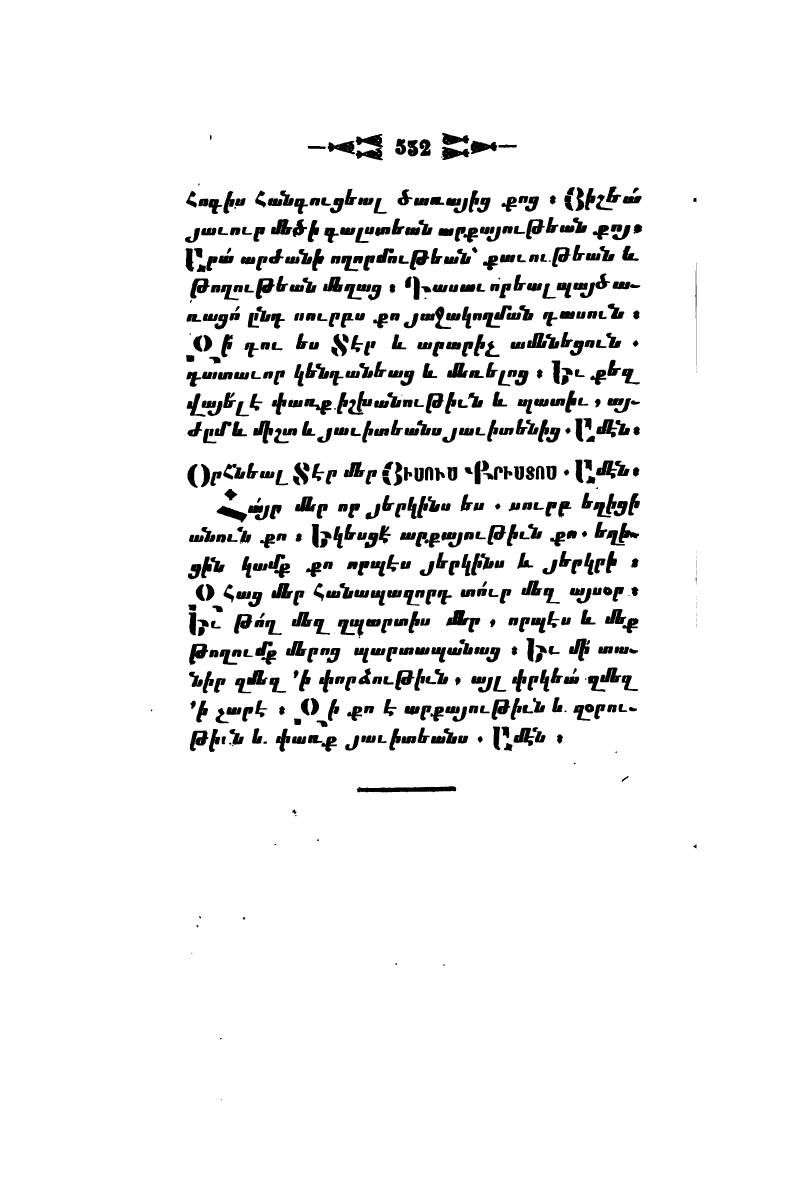 532
հոգիս հանգուցեալ ծառայից քոց ։ Յիշեա՛
յաւուր մեծի գալստեան արքայութեան քոյ։
Արա՛ արժանի ողորմութեան՝ քաւութեան և
թողութեան մեղաց ։ Դասաւորեալ պայծա-
ռացո՛ ընդ սուրբս քո յաջակողման դասուն ։
Զի դու ես Տէր և արարիչ ամենեցուն ․
դատաւոր կենդանեաց և մեռելոց ։ Եւ քեզ
վայելէ փառք իշխանութիւն և պատիւ , այ-
ժըմ և միշտ և յաւիտեանս յաւիտենից ․ Ամէն։
Օրհնեալ Տէր մեր Յիսուս Քրիստոս ․ Ամէն։
Հայր մեր որ յերկինս ես ․ սուրբ եղիցի
անուն քո ։ Եկեսցէ արքայութիւն քո ․ եղի-
ցին կամք քո որպէս յերկինս և յերկրի ։
Զհաց մեր հանապազորդ տո՛ւր մեզ այսօր ։
Եւ թո՛ղ մեզ զպարտիս մեր , որպէս և մեք
թողումք մերոց պարտապանաց ։ Եւ մի՛ տա-
նիր զմեզ ՚ի փորձութիւն , այլ փրկեա՛ զմեզ
՚ի չարէ ։ Զի քո է արքայութիւն և զօրու-
թիւն և փառք յաւիտեանս ․ Ամէն ։